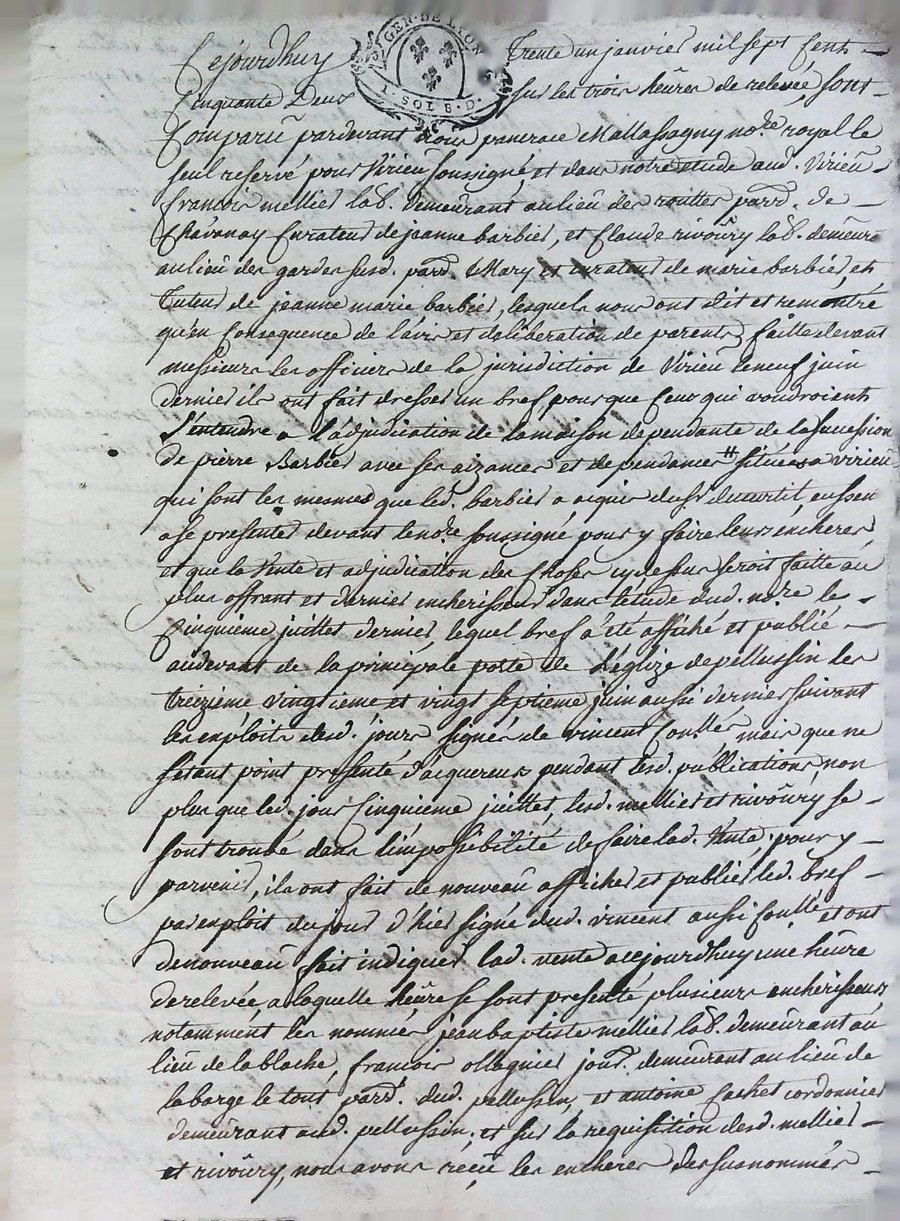 GEN. DE LYON
1. SOL 8. D.
Cejourdhuy trente un janvier mil sept cent
Cinquante Deux sur les trois heures de relevée, sont
Comparu pardevant nous pancrace Mallassagny no.re royal le
seul reservé pour Virieu soussigné et dans notre etude aud. Virieu
francois mellier lab. demeurant au lieu des routtes parr. de
Chavanay Curateur de jeanne barbier, et Claude rivoüry lab. demeur.
au lieu des gardes susd. parr. Mary et curateur de marie barbier, et
Tuteur de jeanne marie barbier, lesquels nous ont dit et remontré
qu'en Consequence de l'avis et deliberation de parents faitte devant
messieurs les officiers de la jurisdiction de Virieu le neuf juin
dernier ils ont fait dresser un bref pour que Ceux qui voudroient
S'entendre a L'adjudication de la maison dependante de la sucession
de pierre Barbier avec ses aizances et dependances # située a virieu
qui sont les mesmes que led. barbier a aquis du Sr. ducurtil, eussent
a se presenter devant le no.re soussigné pour y faire leurs encheres,
et que la Vente et adjudication des Choses cy dessus seroit faitte au
plus offrant et dernier encherisseur dans letude dud. no.re le
Cinquieme juillet dernier, lequel bref a été affiché et publié
au devant de la principale porte de L'églize de pellussin les
treizieme vingtieme et vingt septieme juin aussi dernier suivant
les exploits desd. jours signés de vincent mais que ne
s'etant point presenté d'acquereurs pendant lesd. publications, non
plus que led. jour Cinquieme juillet, lesd. mellier et rivoüry se
sont trouvé dans l'impossibilité de faire lad. Vente, pour y
parvenir, ils ont fait de nouveau afficher et publier led. bref
par exploit du jour d'hier signé dud. vincent aussi et ont
de nouveau fait indiquer lad. vente a cejourdhuy une heure
de relevée, a laquelle heure se sont presenté plusieurs encherisseurs
notamment les nommés jean baptiste mellier lab. demeurant au
lieu de la blache, francois ollagnier jour. demeurant au lieu de
la barge le tout parr. dud. pellussin, et antoine Cachet cordonnier
demeurant aud. pellussin, et sur la requisition desd. mellier
et rivoüry, nous avons reçeu les encheres des susnommés